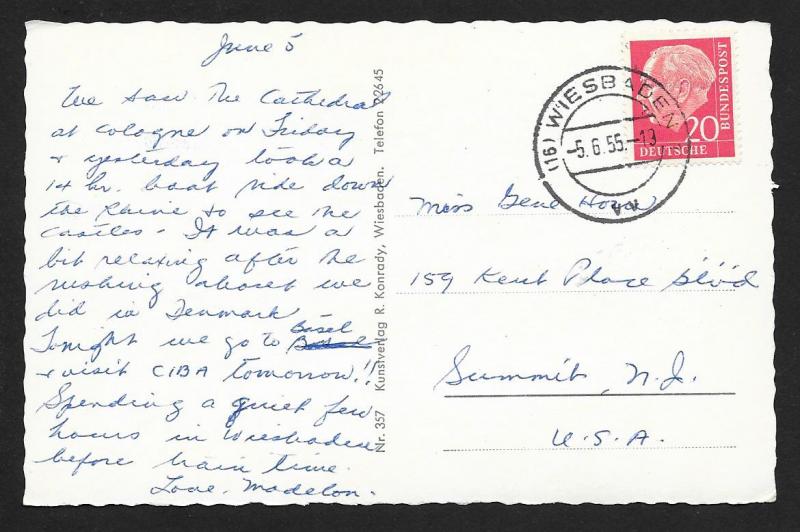 June 5
We saw the Cathedral
at Cologne on Friday
& yesterday took a
14 hr. boat ride down
the Rhine to see the
castles. It was a
bit relaxing after the
rushing about we
did in Denmark
Tonight we go to Basel
& visit CIBA tomorrow!!
Spending a quiet few
hours in Wiesbaden
before train time.
Love. Madelon.
Nr. 357 Kunstverlag R. Konrady, Wiesbaden. Telefon 22645
(16) WIESBADEN
-5.6.55.-19
DEUTSCHE
BUNDESPOST
20
Miss Gene
159 Kent Place Blvd
Summit, N.J.
U.S.A.